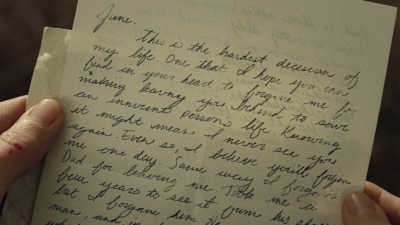 June.
This is the hardest decision of
my life. One that I hope you can
find in your heart to forgive me for
making. Leaving you behind to save
an innocent person's life. Knowing
it might mean I never see you
again. Even so, I believe you'll forgive
me one day. Same way I forgave
Dad for leaving me. Took me
years to see it from his
last I forgave him
man, and